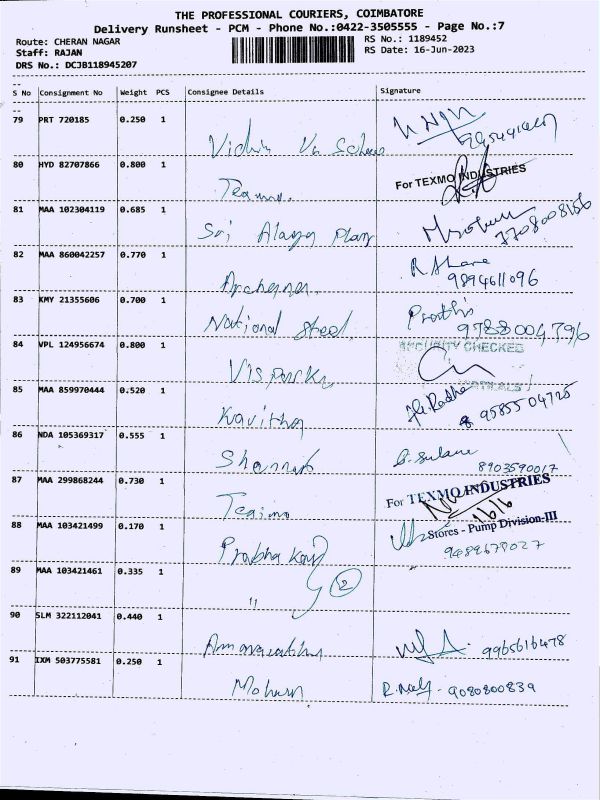 THE PROFESSIONAL COURIERS, COIMBATORE
Delivery Runsheet - PCM - Phone No.:0422-3505555 - Page No.:7
Route: CHERAN NAGAR
RS No.: 1189452
Staff: RAJAN
RS Date: 16-Jun-2023
DRS No.: DCJB118945207
S No Consignment No Weight PCS Consignee Details Signature
79 PRT 720185 0.250 1
80 HYD 82707866 0.800 1
For TEXMO INDUSTRIES
81 MAA 102304119 0.685 1
Sri Alaya
7708008166
82 MAA 860042257 0.770 1
9894611096
83 KMY 21355606 0.700 1
National Steel
9788004796
84 VPL 124956674 0.800 1
SECURITY CHECKED
85 MAA 859970444 0.520 1
Kavitha
Radha
9585504725
86 NDA 105369317 0.555 1
8903590017
87 MAA 299868244 0.730 1
For TEXMO INDUSTRIES
16/6
Stores - Pump Division-III
88 MAA 103421499 0.170 1
Prabhakar
9489678027
89 MAA 103421461 0.335 1
" 2
90 SLM 322112041 0.440 1
9965616478
91 IXM 503775581 0.250 1
Mohan
9080800839